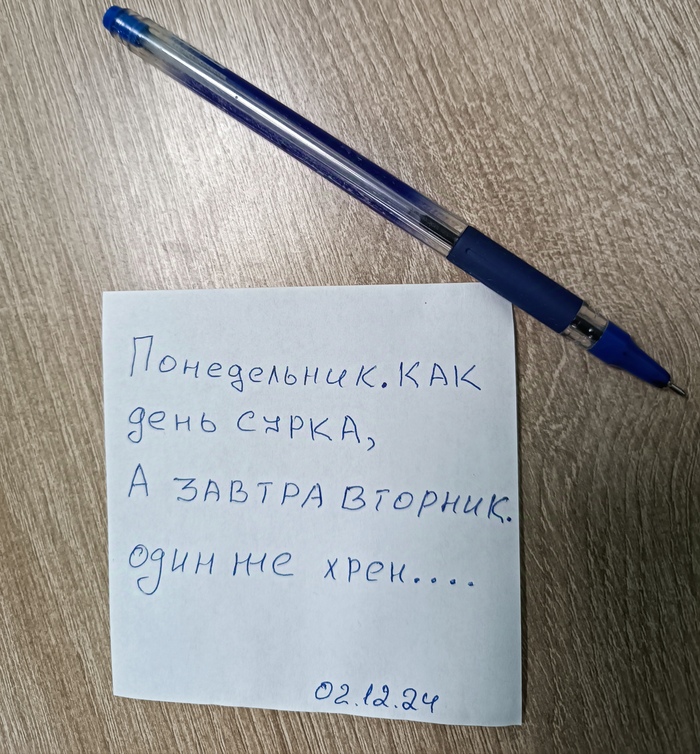 Понедельник. КАК
день СУРКА,
А ЗАВТРА ВТОРНИК.
один же хрен....
02.12.24